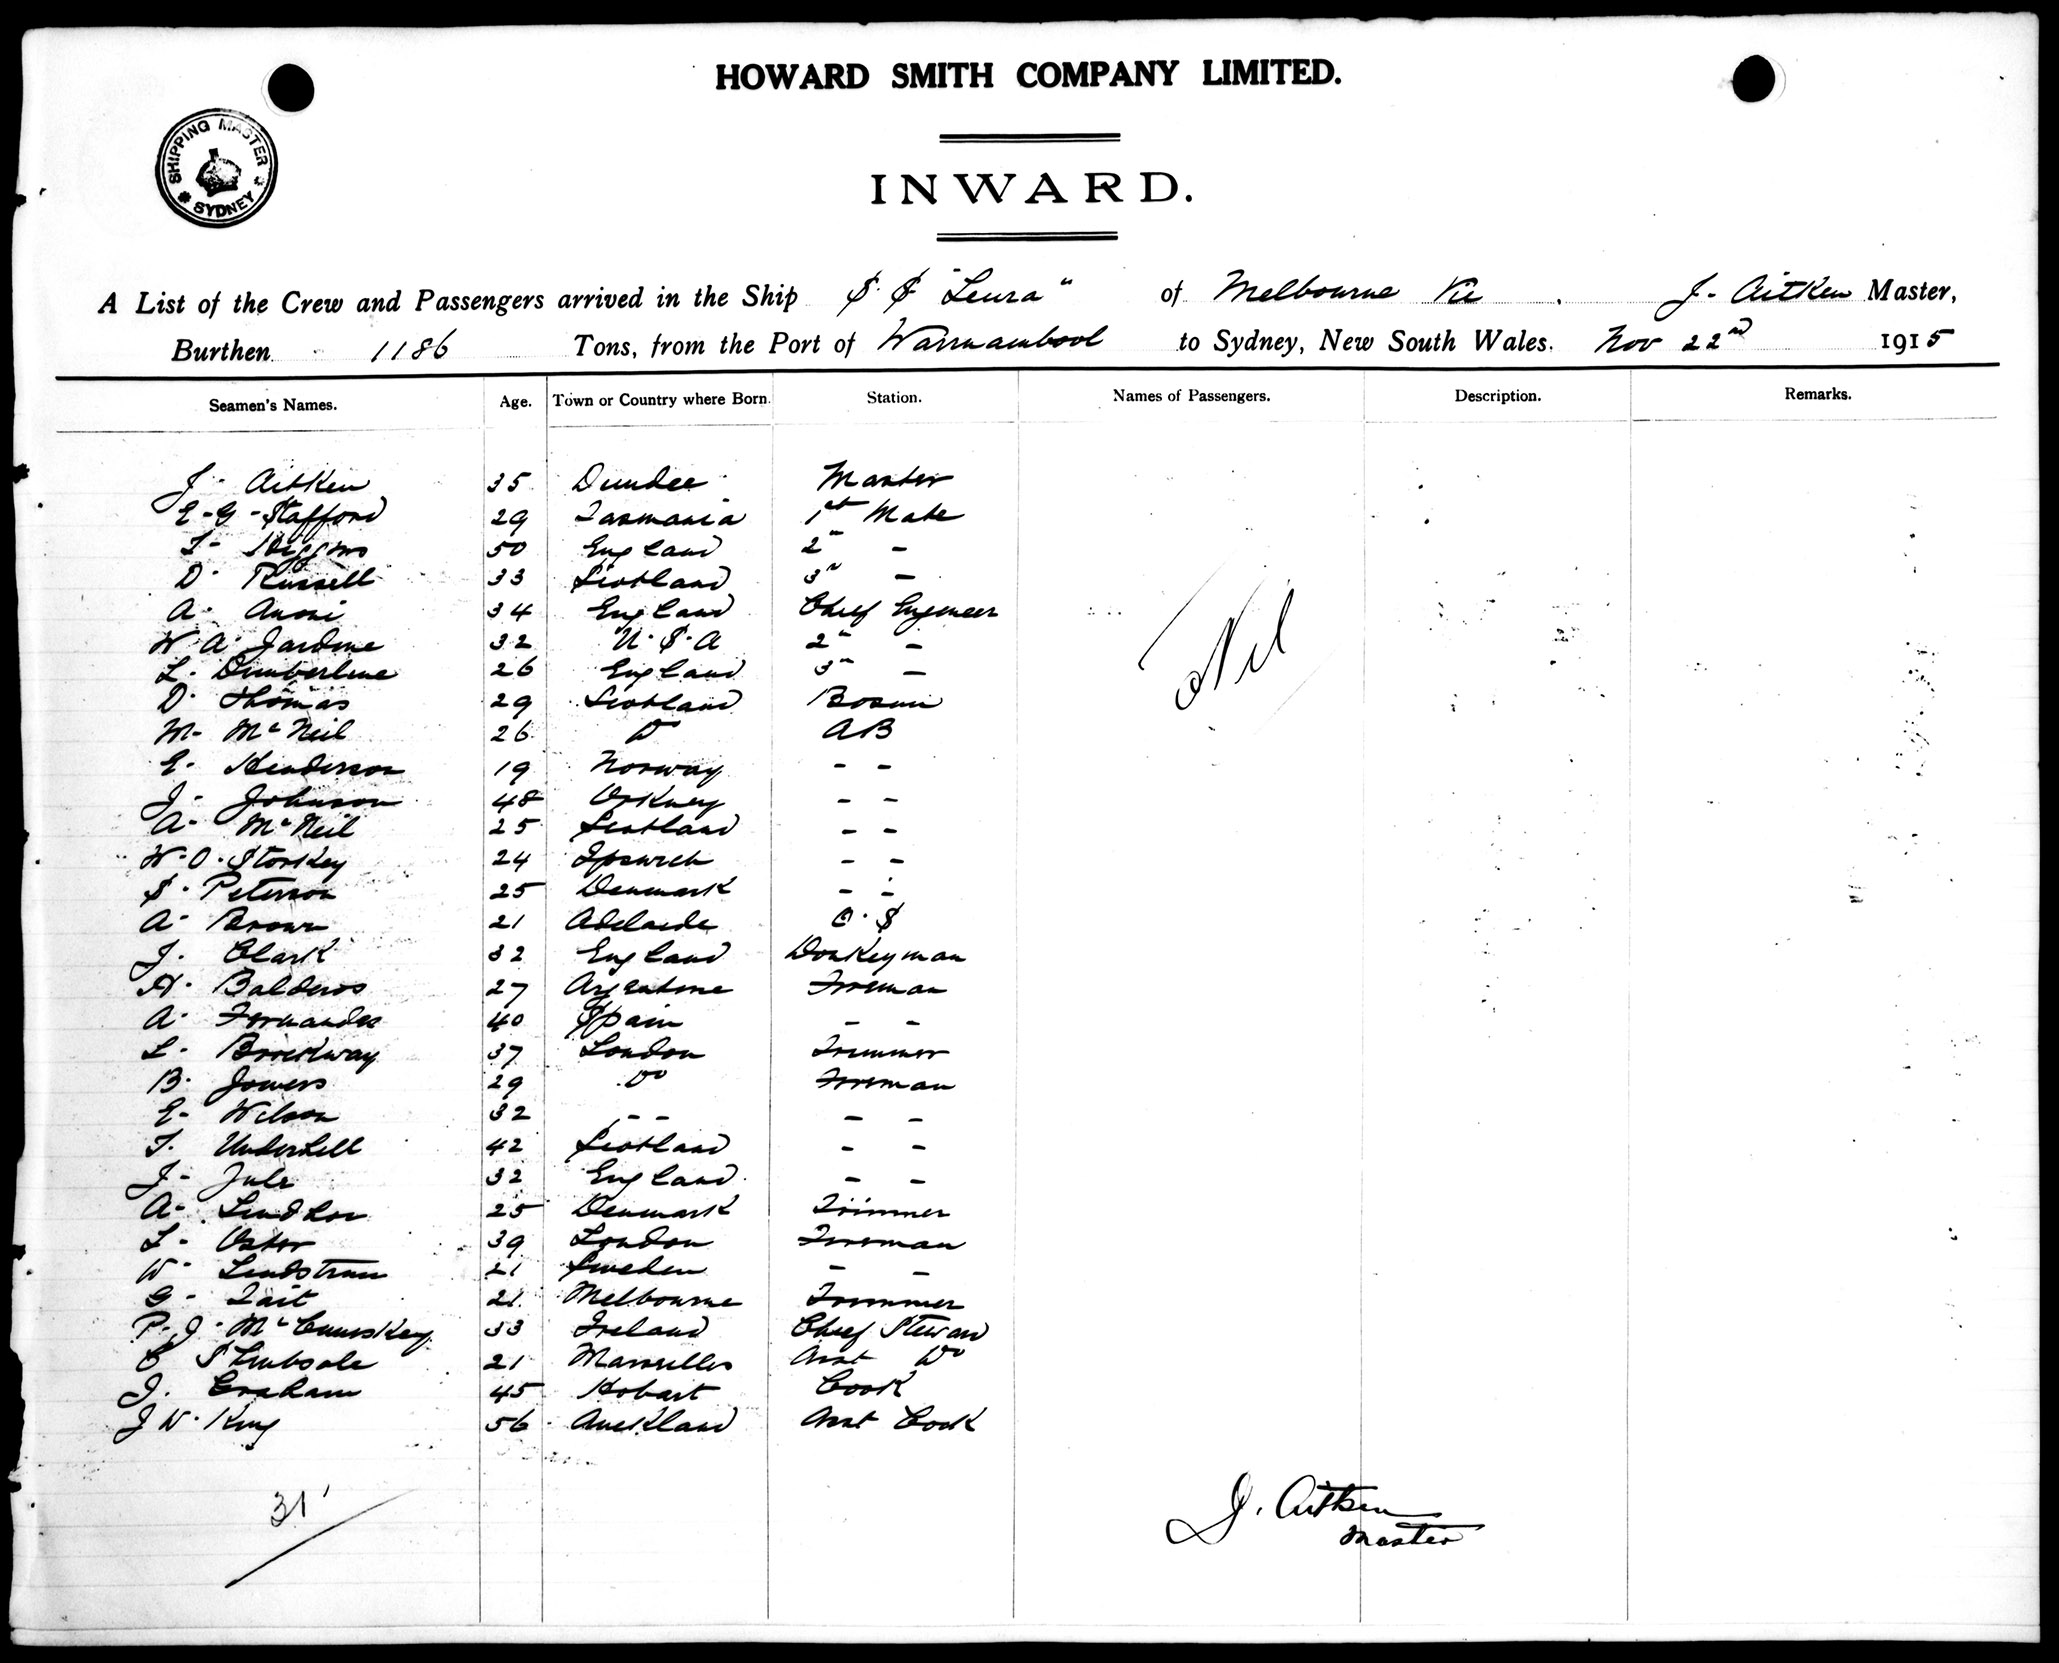 HOWARD SMITH COMPANY LIMITED.
SHIPPING MASTER SYDNEY
INWARD.
A List of the Crew and Passengers arrived in the Ship S. S "Leura" of Melbourne Vic J. Aitken Master,
Burthen 1186 Tons, from the Port of Warrnambool to Sydney, New South Wales. Nov 22nd 1915
Seamen's Names. Age. Town or Country where Born. Station. Names of Passengers. Description. Remarks.
J. Aitken 35 Dundee Master
E. G. Stafford 29 Tasmania 1st Mate
T. Higgins 50 England 2" -
D. Russell 33 Scotland 3rd -
A. 34 England Chief Engineer
W A Jardine 32 U. S. A 2" -
L. Dimberline 26 England 3" -
D. Thomas 29 Scotland Bosun
M. McNeil 26 Do AB
E. Henderson 19 Norway - -
J. Johnson 48 Orkney - -
A. McNeil 25 Scotland - -
W. O. Storkey 24 Ipswich - -
S. Peterson 25 Denmark - -
A. Brown 21 Adelaide O. S
J. Clark 32 England Donkeyman
H. Balderos 27 Argentine Fireman
A. Fernandez 40 Spain - -
L. Brockway 37 London Trimmer
B. Jowers 29 Do Fireman
E. Wilson 32 - - - -
T. Underhill 42 Scotland - -
J. Jule 32 England - -
A. 25 Denmark Trimmer
L. Oster 39 London Fireman
W. Lindstrom 21 Sweden - -
G. Tait 21 Melbourne Trimmer
P. J. McCumskey 33 Ireland Chief Steward
C Shrubsole 21 Marseilles Asst Do
J. Graham 45 Hobart Cook
J W. King 56 Auckland Asst Cook
Nil
31
J. Aitken
Master